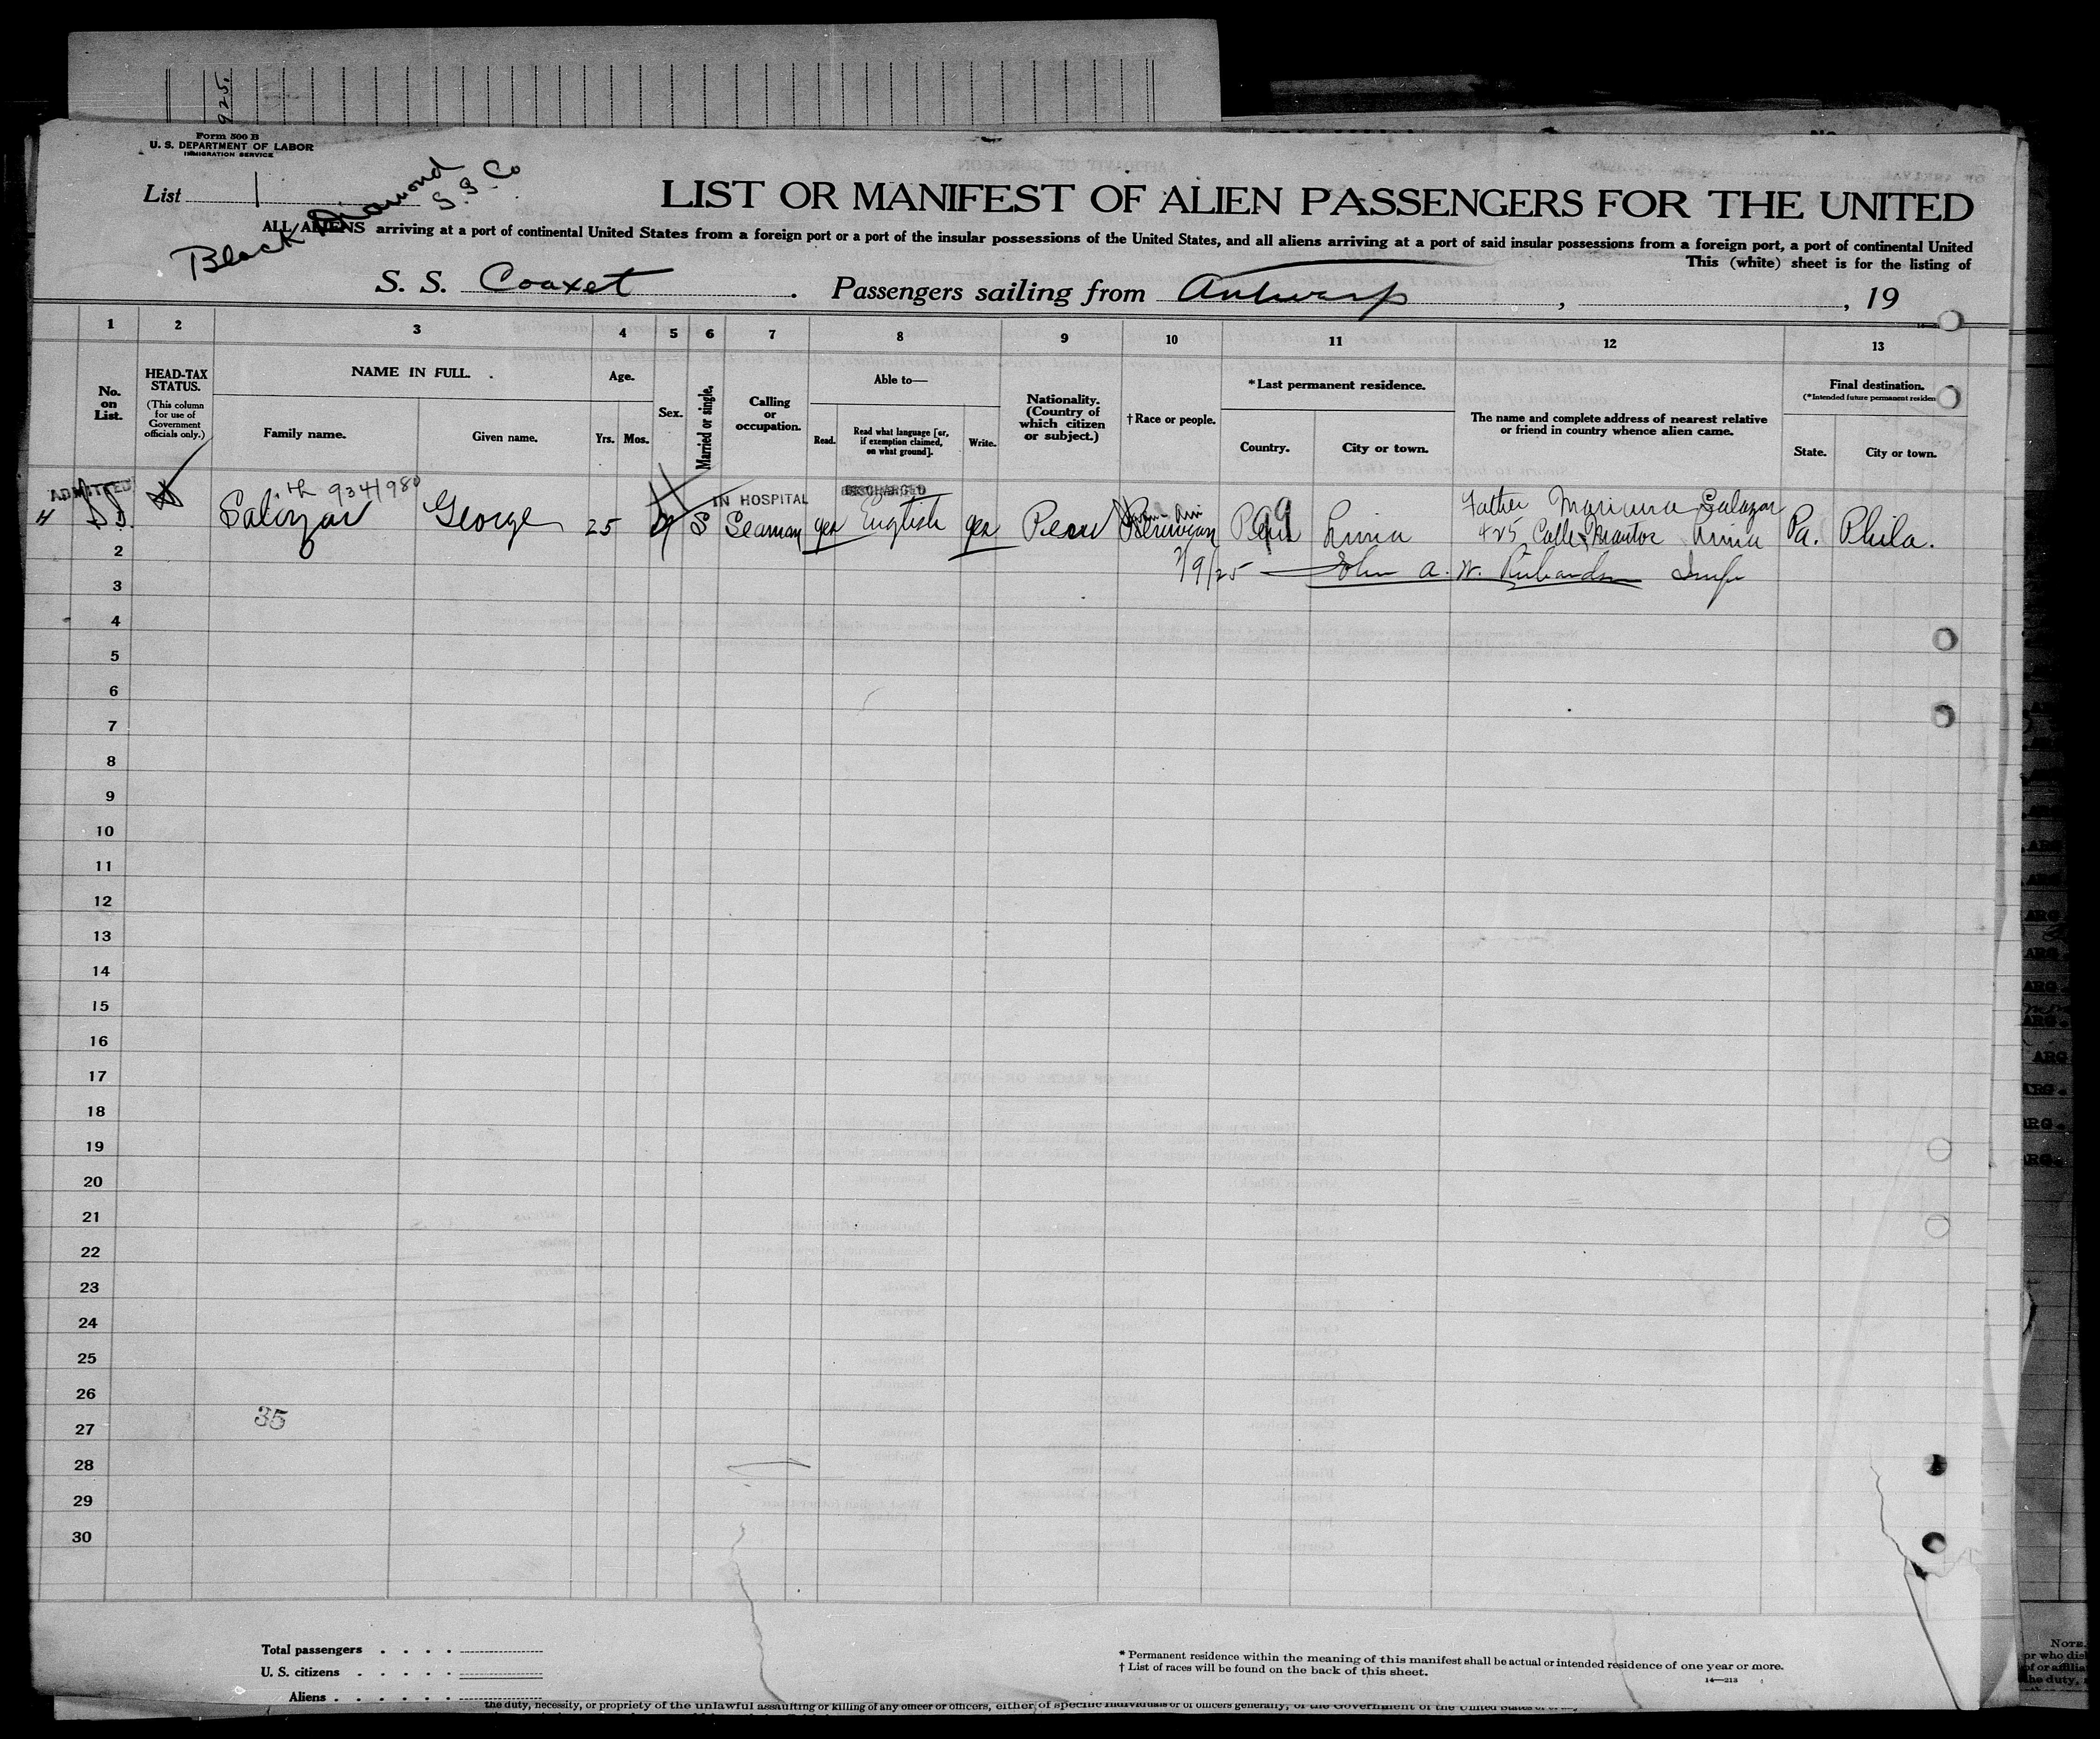 925.
Form 500 B
U. S. DEPARTMENT OF LABOR
IMMIGRATION SERVICE
List 1
Black Diamond S. S. Co
LIST OR MANIFEST OF ALIEN PASSENGERS FOR THE UNITED
ALL ALIENS arriving at a port of continental United States from a foreign port or a port of the insular possessions of the United States, and all aliens arriving at a port of said insular possessions from a foreign port, a port of continental United
This (white) sheet is for the listing of
S. S. Coaxet . Passengers sailing from Antwerp , , 19
1 2 3 4 5 6 7 8 9 10 11 12 13
No. on List.
HEAD-TAX STATUS.
(This column for use of Government officials only.)
NAME IN FULL.
Family name. Given name.
Age.
Yrs. Mos.
Sex.
Married or single.
Calling or occupation.
Able to—
Read. Read what language [or, if exemption claimed, on what ground]. Write.
Nationality. (Country of which citizen or subject.)
†Race or people.
*Last permanent residence.
Country. City or town.
The name and complete address of nearest relative or friend in country whence alien came.
Final destination.
(*Intended future permanent residen
State. City or town.
ADMITTED 9341980 IN HOSPITAL DISCHARGED Father Salazar
Salazar George 25 S Seaman yes English yes Peru Peruvian Peru 99 Lima 425 Calle Lima Pa. Phila.
2
9/25 John A. W. Richardson Insp
3
4
5
6
7
8
9
10
11
12
13
14
15
16
17
18
19
20
21
22
23
24
25
26
35
27
28
29
30
Total passengers . . . .
U. S. citizens . . . . .
Aliens . . . . . .
* Permanent residence within the meaning of this manifest shall be actual or intended residence of one year or more.
† List of races will be found on the back of this sheet.
14—213
the duty, necessity, or propriety of the unlawful assaulting or killing of any officer or officers, either of specific individuals or of officers generally, of the Government of the United States or
NOTE.